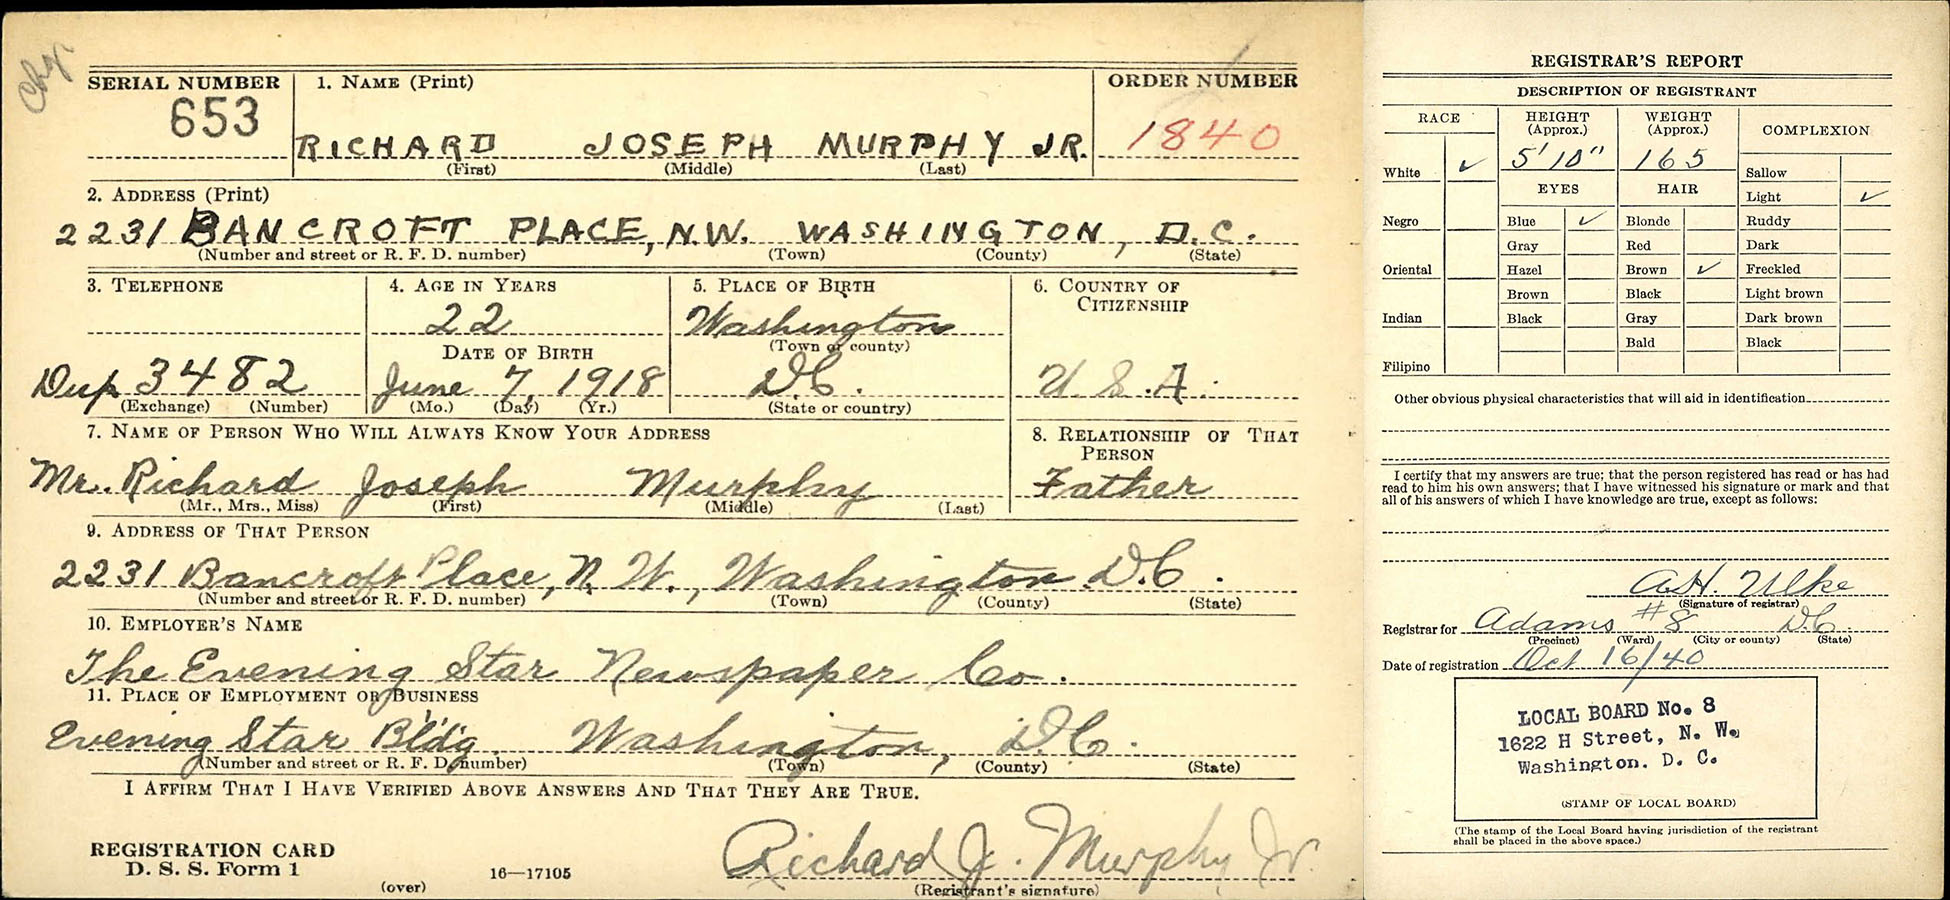 Chg.
SERIAL NUMBER 1. NAME (Print) ORDER NUMBER
653 RICHARD JOSEPH MURPHY JR. 1840
(First) (Middle) (Last)
2. ADDRESS (Print)
2231 BANCROFT PLACE, N.W. WASHINGTON, D.C.
(Number and street or R. F. D. number) (Town) (County) (State)
3. TELEPHONE 4. AGE IN YEARS 5. PLACE OF BIRTH 6. COUNTRY OF CITIZENSHIP
22 Washington
DATE OF BIRTH (Town or county)
Dup 3482 June 7, 1918 D.C. U.S.A.
(Exchange) (Number) (Mo.) (Day) (Yr.) (State or country)
7. NAME OF PERSON WHO WILL ALWAYS KNOW YOUR ADDRESS 8. RELATIONSHIP OF THAT PERSON
Mr. Richard Joseph Murphy Father
(Mr., Mrs., Miss) (First) (Middle) (Last)
9. ADDRESS OF THAT PERSON
2231 Bancroft Place, N.W., Washington D.C.
(Number and street or R. F. D. number) (Town) (County) (State)
10. EMPLOYER'S NAME
The Evening Star Newspaper Co.
11. PLACE OF EMPLOYMENT OR BUSINESS
Evening Star Bldg. Washington, D.C.
(Number and street or R. F. D. number) (Town) (County) (State)
I AFFIRM THAT I HAVE VERIFIED ABOVE ANSWERS AND THAT THEY ARE TRUE.
REGISTRATION CARD
D. S. S. Form 1
(over) 16—17105
Richard J. Murphy Jr.
(Registrant's signature)
REGISTRAR'S REPORT
DESCRIPTION OF REGISTRANT
RACE HEIGHT (Approx.) WEIGHT (Approx.) COMPLEXION
White ✓ 5' 10" 165 Sallow
EYES HAIR Light ✓
Negro Blue ✓ Blonde Ruddy
Gray Red Dark
Oriental Hazel Brown ✓ Freckled
Brown Black Light brown
Indian Black Gray Dark brown
Bald Black
Filipino
Other obvious physical characteristics that will aid in identification
I certify that my answers are true; that the person registered has read or has had
read to him his own answers; that I have witnessed his signature or mark and that
all of his answers of which I have knowledge are true, except as follows:
A.H. Ulke
(Signature of registrar)
Registrar for Adams #8 D.C.
(Precinct) (Ward) (City or county) (State)
Date of registration Oct 16/40
LOCAL BOARD No. 8
1622 H Street, N. W.
Washington. D. C.
(STAMP OF LOCAL BOARD)
(The stamp of the Local Board having jurisdiction of the registrant
shall be placed in the above space.)